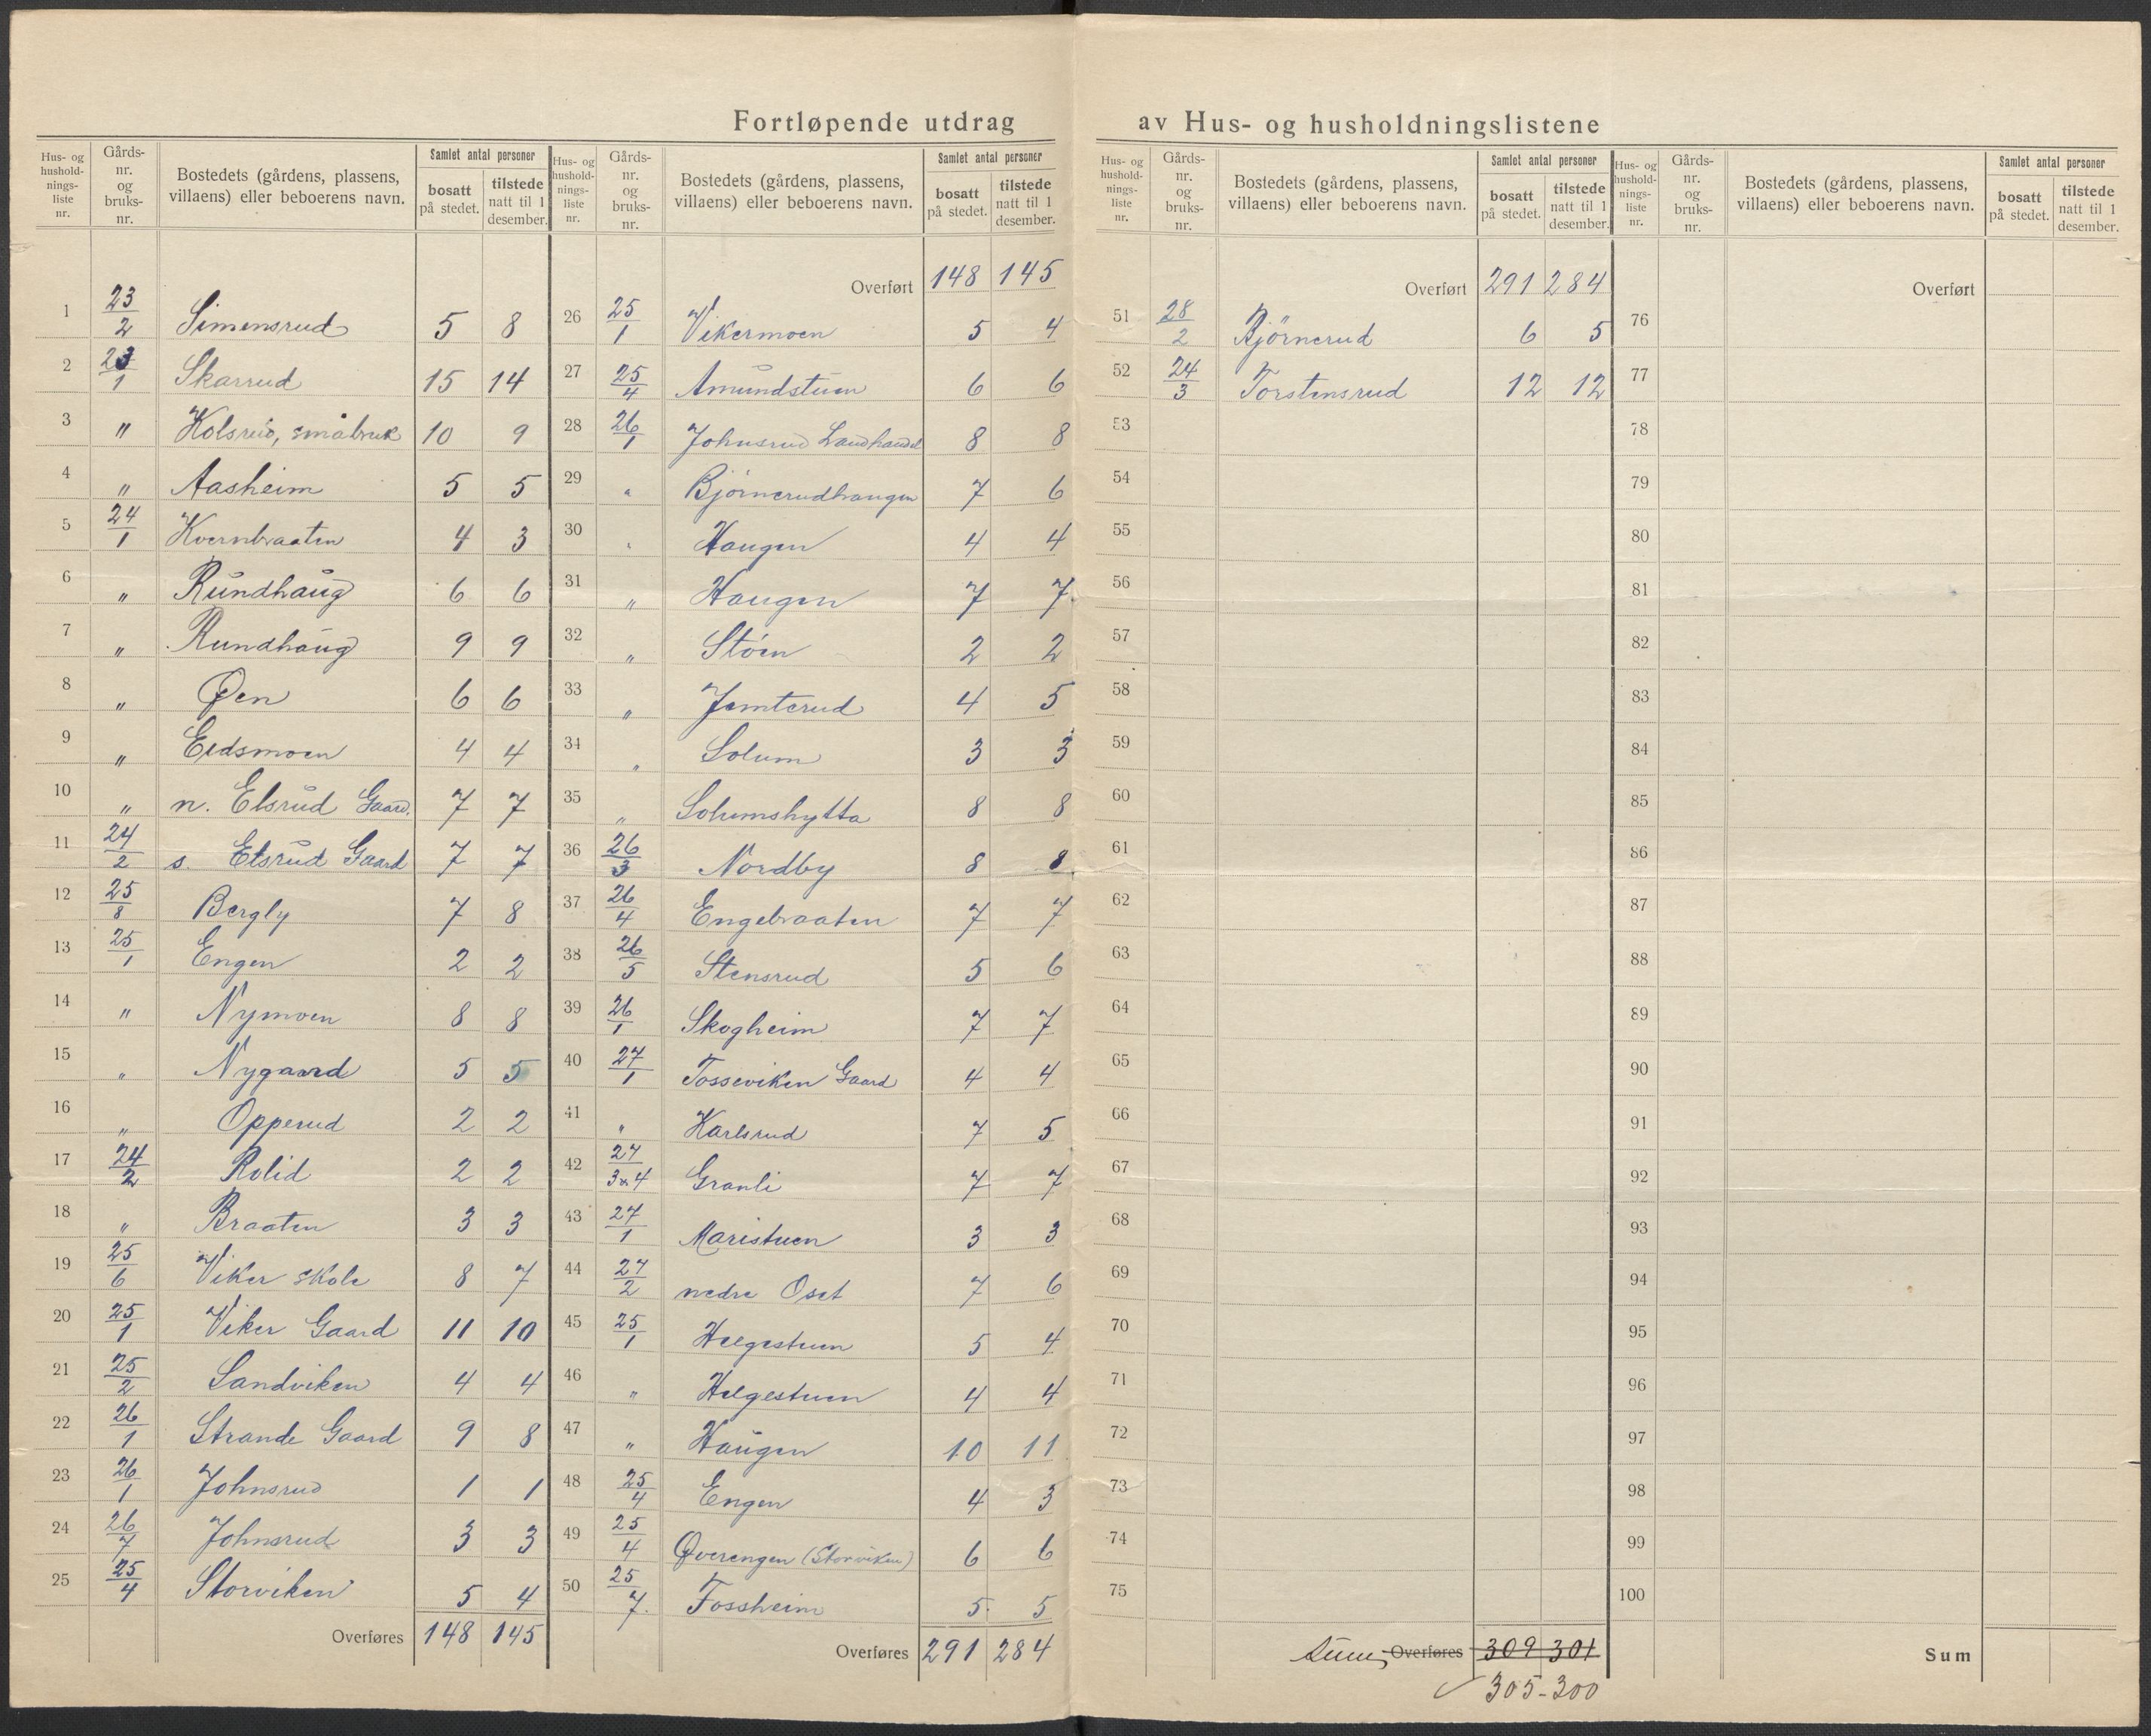 Fortløpende utdrag av Hus- og husholdningslistene
Hus- og hushold-nings-liste nr. Gårds-nr. og bruks-nr. Bostedets (gårdens, plassens, villaens) eller beboerens navn. Samlet antal personer bosatt på stedet. tilstede natt til 1 desember.
1 23/2 Simensrud 5 8
2 23/1 Skarrud 15 14
3 " Kolsrud, småbruk 10 9
4 " Aasheim 5 5
5 24/1 Kvernbraaten 4 3
6 " Rundhaug 6 6
7 " Rundhaug 9 9
8 " Øen 6 6
9 " Eidsmoen 4 4
10 " n. Elsrud Gaard. 7 7
11 24/2 s. Elsrud Gaard 7 7
12 25/8 Bergly 7 8
13 25/1 Engen 2 2
14 " Nymoen 8 8
15 " Nygaard 5 5
16 " Opperud 2 2
17 24/2 Rolid 2 2
18 " Braaten 3 3
19 25/6 Viker skole 8 7
20 25/1 Viker Gaard 11 10
21 25/2 Sandviken 4 4
22 26/1 Strande Gaard 9 8
23 26/1 Johnsrud 1 1
24 26/7 Johnsrud 3 3
25 25/4 Storviken 5 4
Overføres 148 145
Hus- og hushold-nings-liste nr. Gårds-nr. og bruks-nr. Bostedets (gårdens, plassens, villaens) eller beboerens navn. Samlet antal personer bosatt på stedet. tilstede natt til 1 desember.
Overført 148 145
26 25/1 Vikermoen 5 4
27 25/4 Amundstuen 6 6
28 26/1 Johnsrud Landhandel 8 8
29 " Bjørnerudhaugen 7 6
30 " Haugen 4 4
31 " Haugen 7 7
32 " Støen 2 2
33 " Jemterud 4 5
34 " Solum 3 3
35 " Solumshytta 8 8
36 26/3 Nordby 8 8
37 26/4 Engebraaten 7 7
38 26/5 Stensrud 5 6
39 26/1 Skogheim 7 7
40 27/1 Tosseviken Gaard 4 4
41 " Karlsrud 7 5
42 27/3&4 Granli 7 7
43 27/1 Maristuen 3 3
44 27/2 nedre Oset 7 6
45 25/1 Helgestuen 5 4
46 " Helgestuen 4 4
47 " Haugen 10 11
48 25/4 Engen 4 3
49 25/4 Øverengen (Storviken) 6 6
50 25/7. Fossheim 5. 5
Overføres 291 284
Hus- og hushold-nings-liste nr. Gårds-nr. og bruks-nr. Bostedets (gårdens, plassens, villaens) eller beboerens navn. Samlet antal personer bosatt på stedet. tilstede natt til 1 desember.
Overført 291 284
51 28/2 Bjørnerud 6 5
52 24/3 Torstensrud 12 12
53
54
55
56
57
58
59
60
61
62
63
64
65
66
67
68
69
70
71
72
73
74
75
Sum, Overføres 309 301
305-300
Hus- og hushold-nings-liste nr. Gårds-nr. og bruks-nr. Bostedets (gårdens, plassens, villaens) eller beboerens navn. Samlet antal personer bosatt på stedet. tilstede natt til 1 desember.
Overført
76
77
78
79
80
81
82
83
84
85
86
87
88
89
90
91
92
93
94
95
96
97
98
99
100
Sum